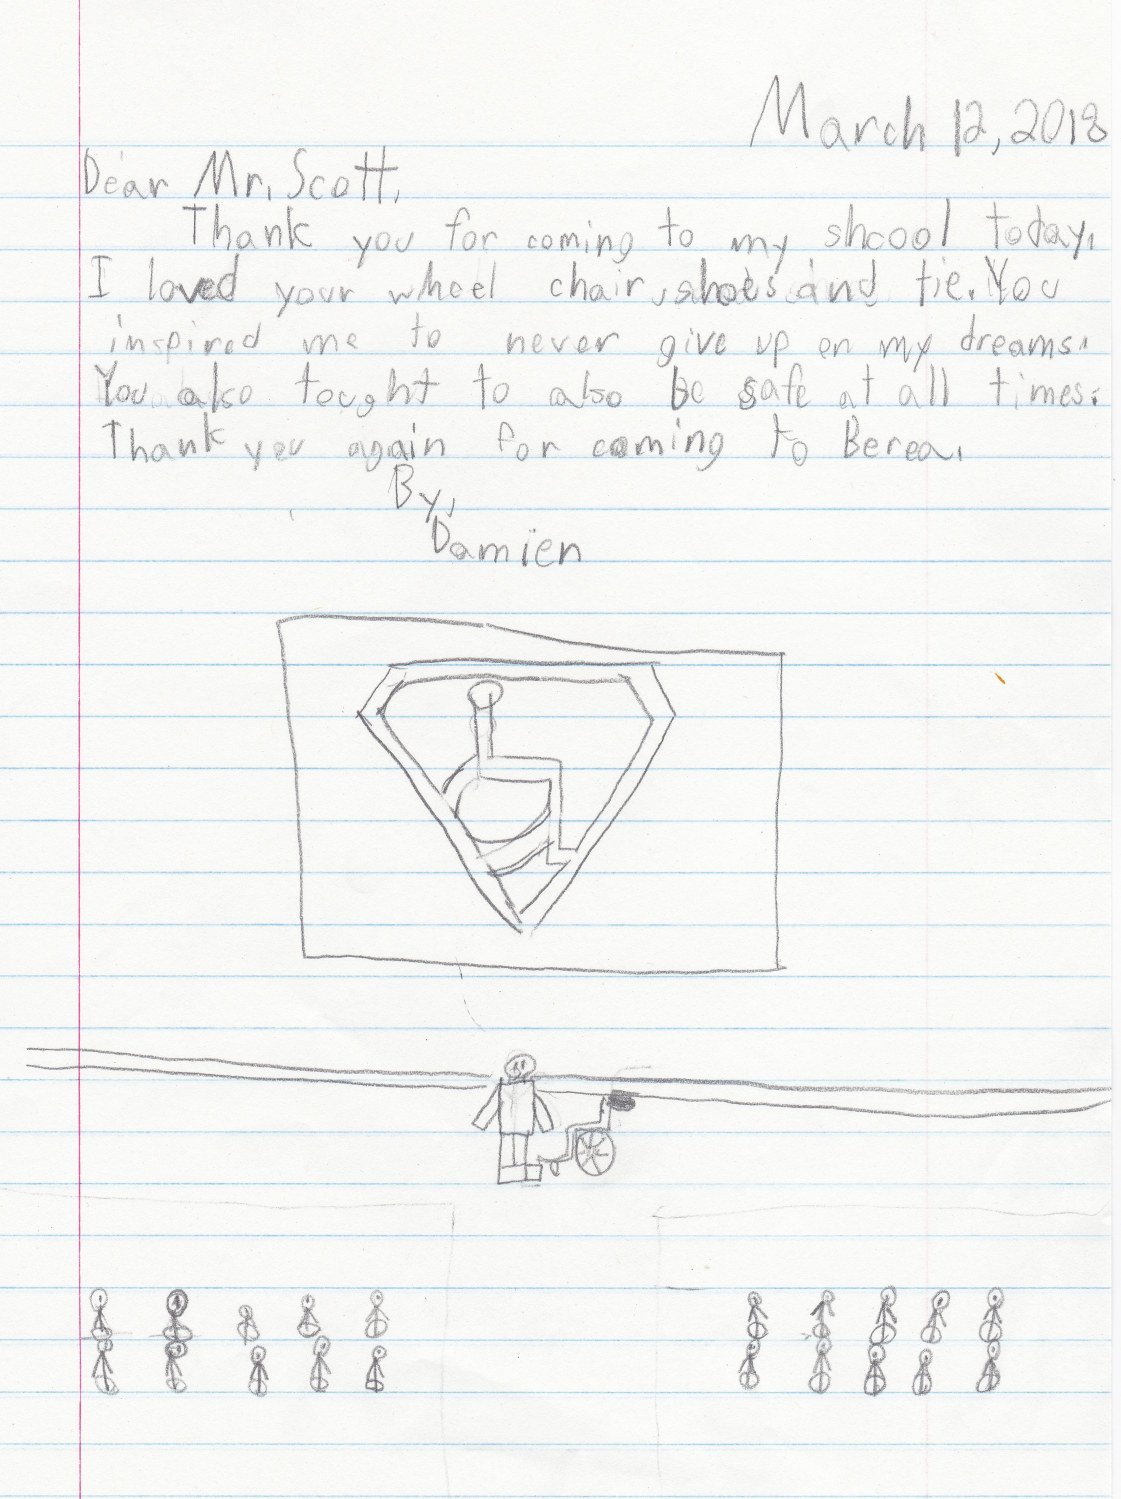 March 12, 2018
Dear Mr. Scott,
Thank you for coming to my shcool today.
I loved your wheel chair, shoes and tie. You
inspired me to never give up on my dreams.
You also tought to also be safe at all times.
Thank you again for coming to Berea.
By,
Damien